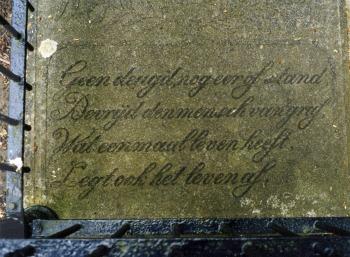 Geen deugd, nog eer of stand
Bevrijd den mensch van 'graf
Wat eenmaal leven heeft.
Legt ook het leven af.